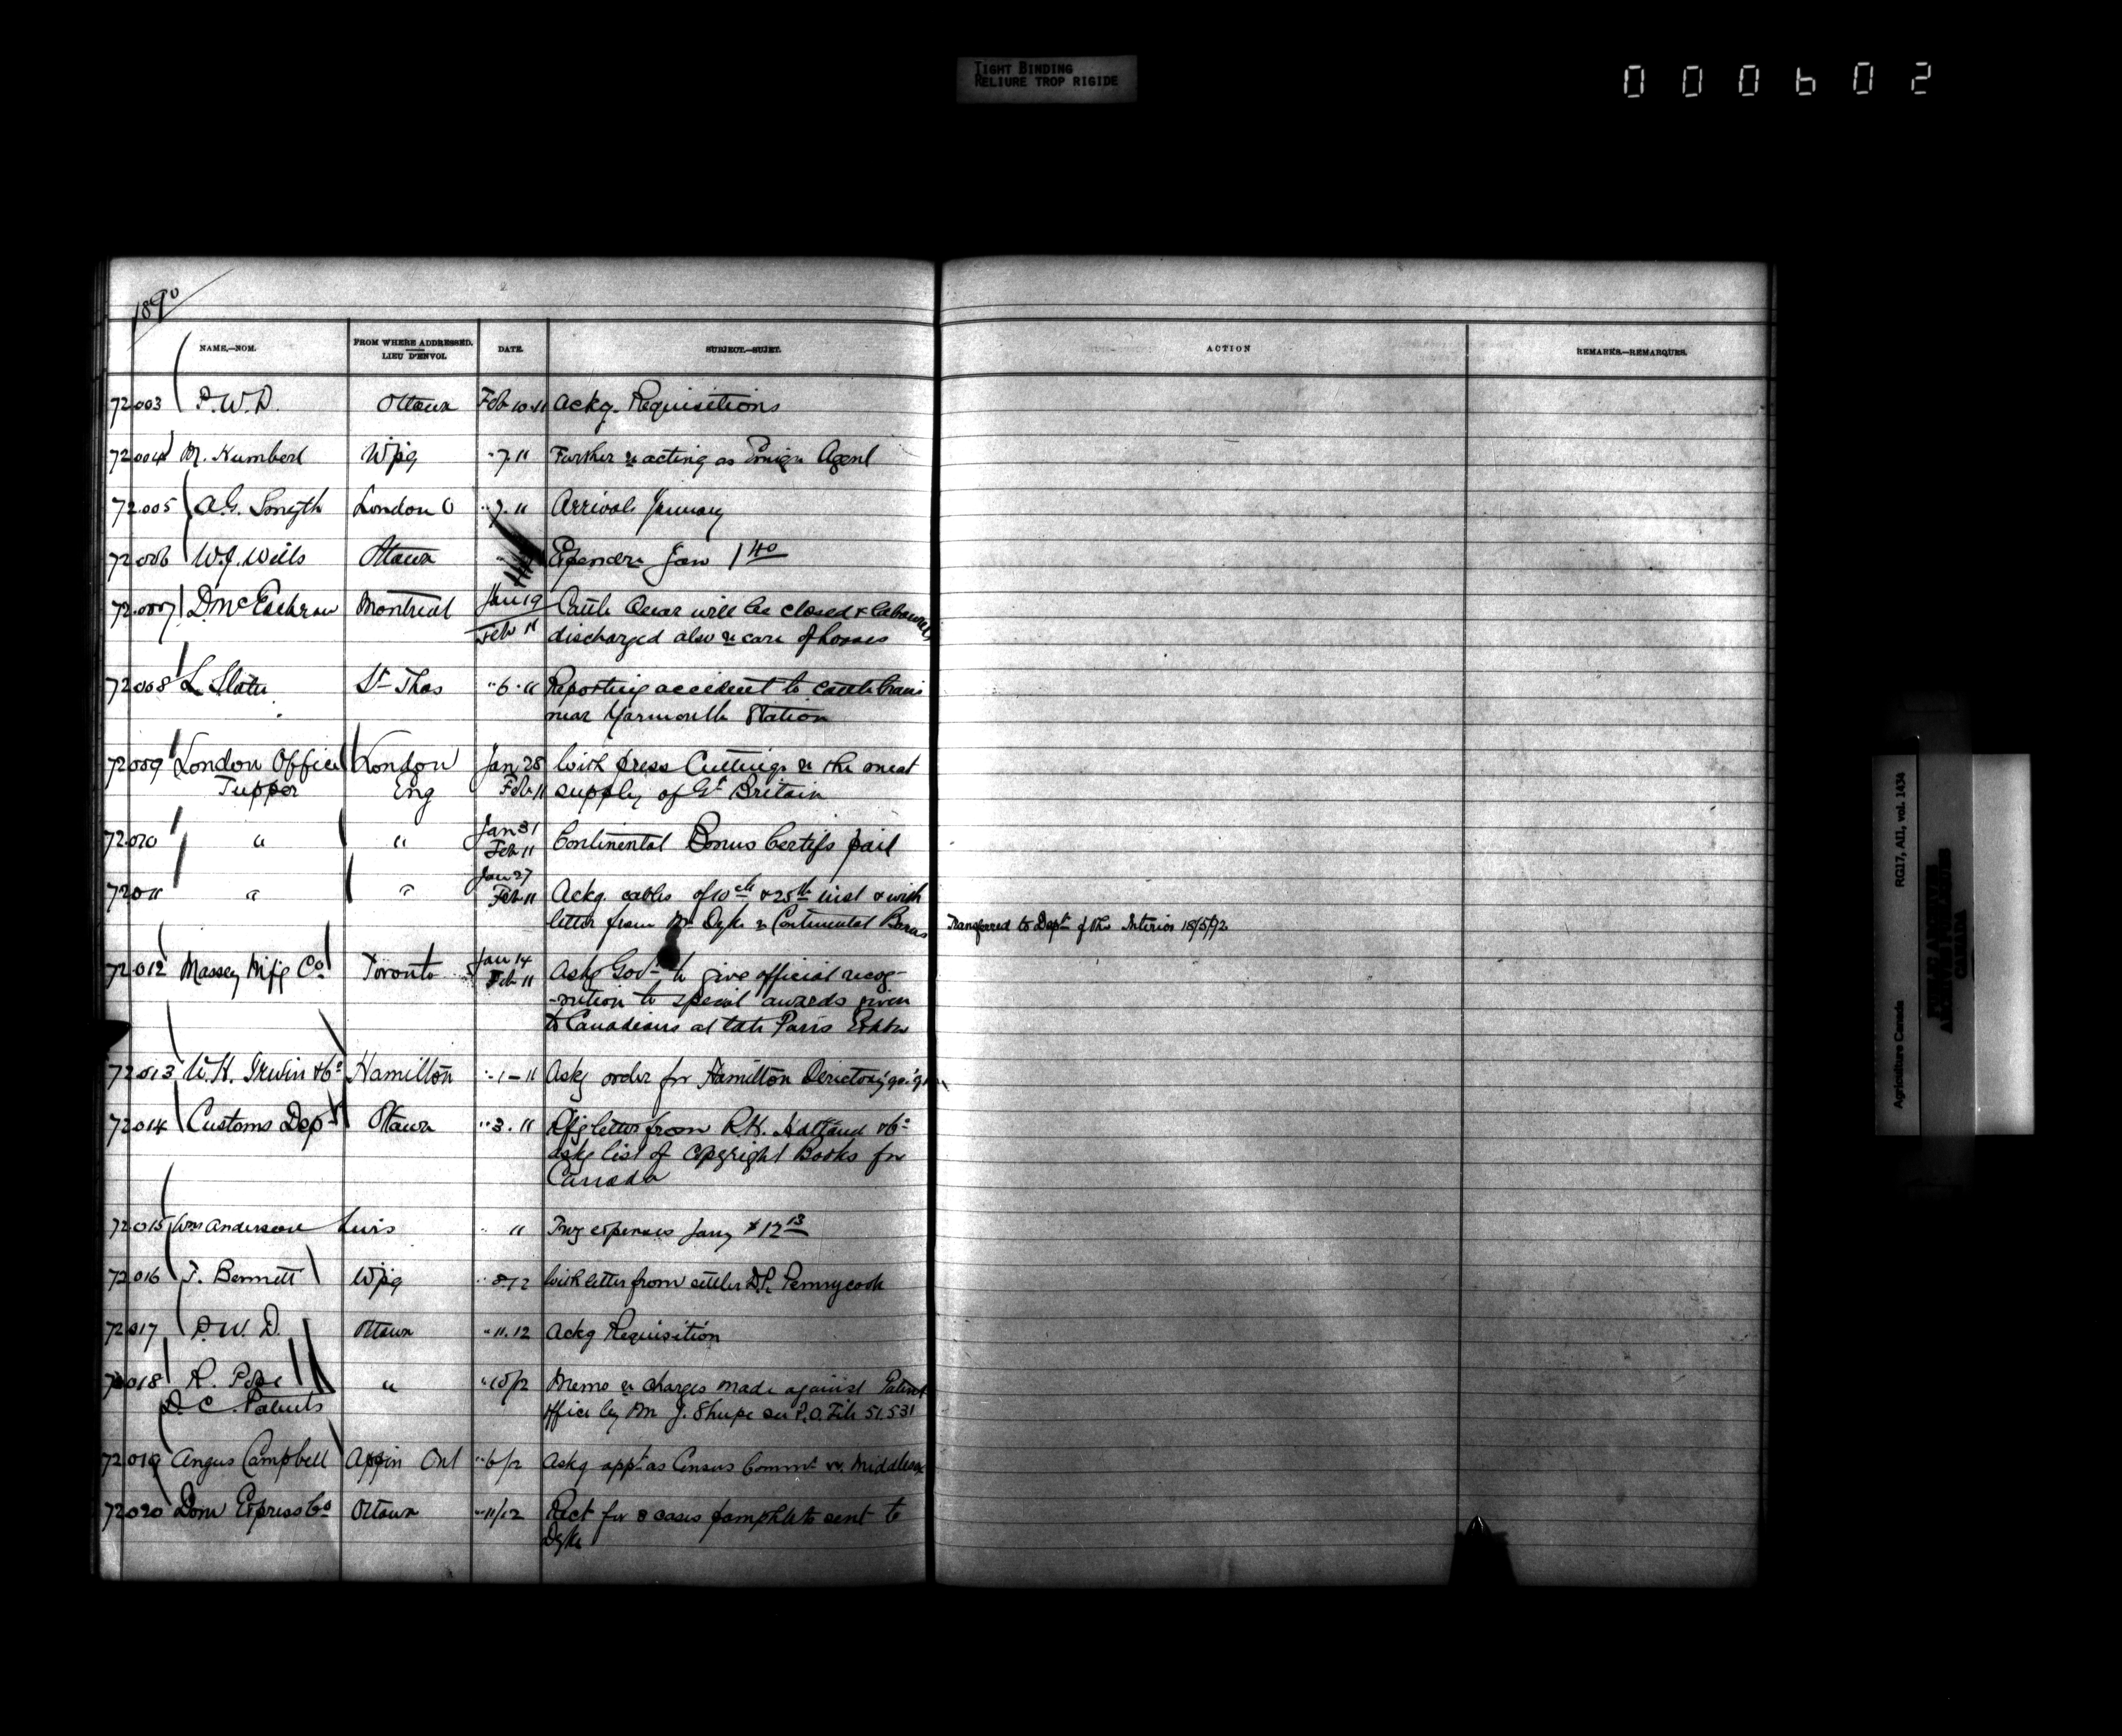 TIGHT BINDING
RELIURE TROP RIGIDE
000602
1890
NAME.—NOM.
FROM WHERE ADDRESSED.
LIEU D'ENVOI.
DATE.
SUBJECT.—SUJET.
ACTION
REMARKS.—REMARQUES.
72003 P.W.D. Ottawa Feb 10.11 Ackg. Requisitions
72004 M. Humberl Wpg " 7 11 Further re acting as Emign Agent
72005 A.G. Smyth London O " 7. 11 Arrivals January
72006 W.J. Wills Ottawa Expendre Jan 1 40
72007 D. McEachran Montreal Jan 19 Cattle Quar will be closed & labourers
Feb 11 discharged also re care of horses
72008 L Slater St Thos " 6. 11 Reporting accident to cattle train
near Yarmouth Station
72009 London Office London Jan 28 With press Cuttings re the meat
Tupper Eng Feb 11 supply of Gt Britain
72010 " " Jan 31
Feb 11 Continental Bonus Certifs paid
72011 " " Jan 27
Feb 11 Ackg. cables of 10th & 25th inst & with
letter from Mr Dyke re Continental Bonus Transferred to Dept of the Interior 18/5/92
72012 Massey Mfg Co Toronto Jan 14
Feb 11 Askg Govt to give official recog-
-nition to special awards given
to Canadians at late Paris Exhbn
72013 W.H. Irwin & Co Hamilton " 1-11 Askg order for Hamilton Directory
72014 Customs Dept Ottawa " 3. 11 letter from R.H.
askg list of Copyright Books for
Canada
72015 Wm Anderson Levis " 11 Trvg expenses Jany $12 13
72016 T. Bennett Wpg " 8/12 With letter from settler D.P. Pennycook
72017 P.W.D. Ottawa " 11.12 Ackg Requisition
72018 R. Pope " " 10/12 Memo re charges made against Patent
D.C. Patents office by Mr J. Shupe see P.O. File 51.531
72019 Angus Campbell Appin Ont " 6/12 Askg appt as Census Commr W. Middlesex
72020 Dom Express Co Ottawa " 11/12 Rect for 8 cases pamphlets sent to
Dyke
RG17, AII, vol. 1434
Agriculture Canada
PUBLIC ARCHIVES
ARCHIVES PUBLIQUES
CANADA